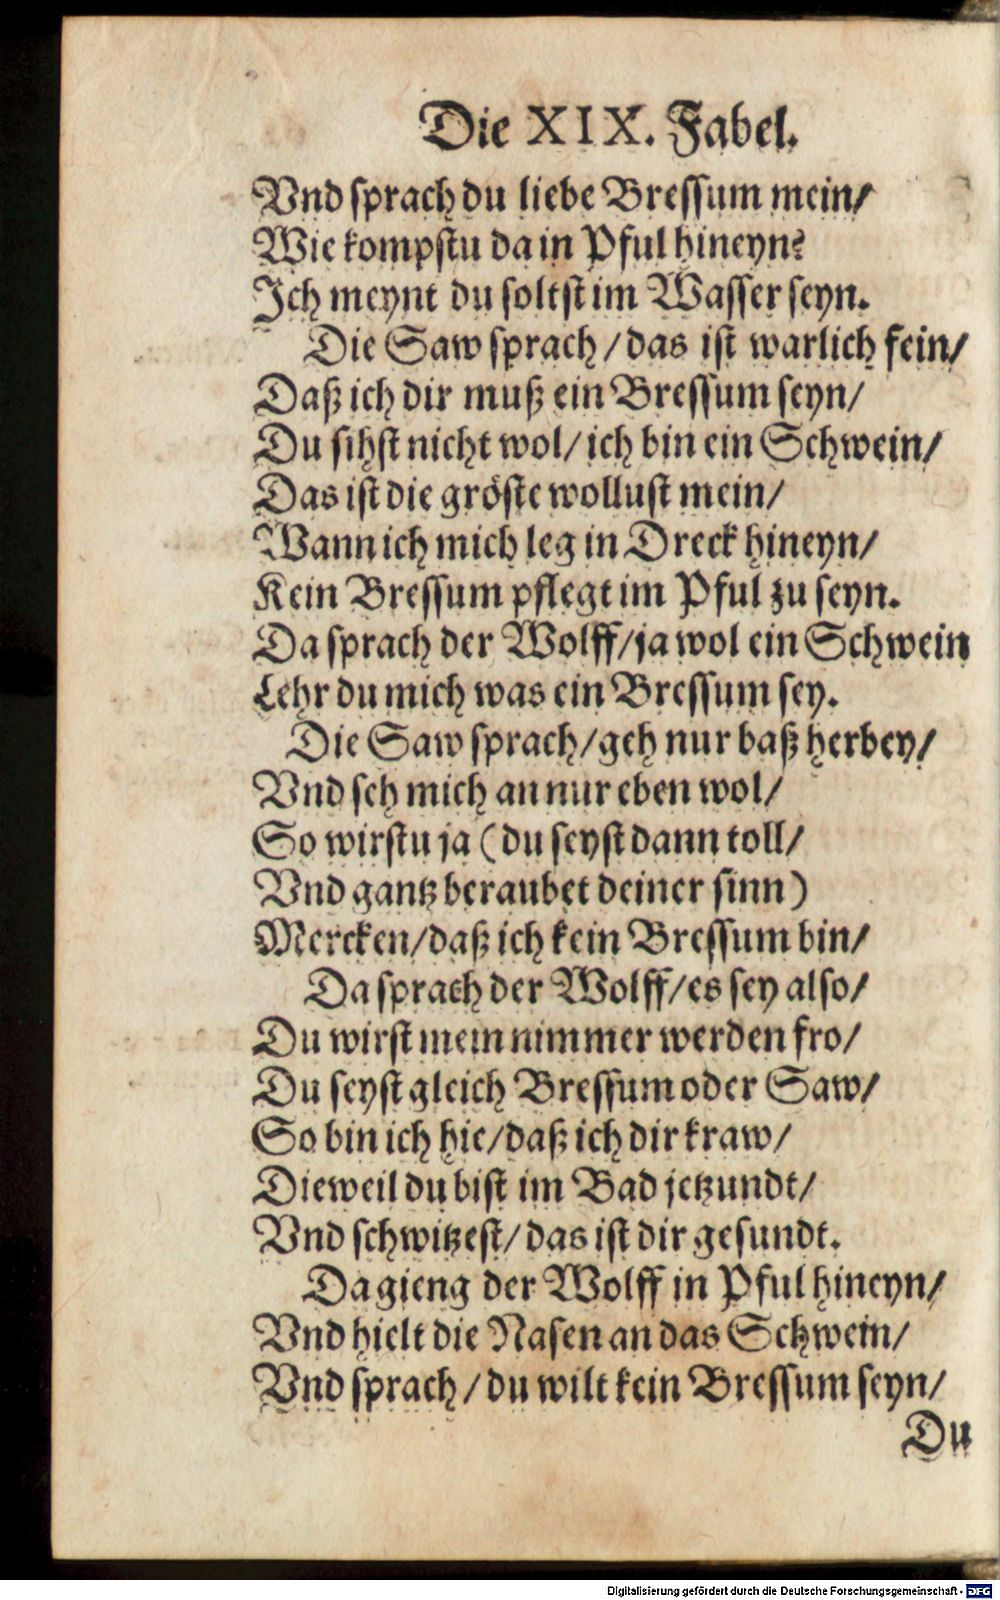 Die XIX. Fabel.
Vnd sprach du liebe Bressum mein/
Wie kompstu da in Pful hineyn?
Jch meynt du soltst im Wasser seyn.
Die Saw sprach/das ist warlich fein/
Daß ich dir muß ein Bressum seyn/
Du sihst nicht wol/ich bin ein Schwein/
Das ist die gröste wollust mein/
Wann ich mich leg in Dreck hineyn/
Kein Bressum pflegt im Pful zu seyn.
Da sprach der Wolff/ja wol ein Schwein
Lehr du mich was ein Bressum sey.
Die Saw sprach/geh nur baß herbey/
Vnd seh mich an nur eben wol/
So wirstu ja (du seyst dann toll/
Vnd gantz beraubet deiner sinn)
Mercken/daß ich kein Bressum bin/
Da sprach der Wolff/es sey also/
Du wirst mein nimmer werden fro/
Du seyst gleich Bressum oder Saw/
So bin ich hie/daß ich dir kraw/
Dieweil du bist im Bad jetzundt/
Vnd schwitzest/das ist dir gesundt.
Da gieng der Wolff in Pful hineyn/
Vnd hielt die Nasen an das Schwein/
Vnd sprach/du wilt kein Bressum seyn/
Du
Digitalisierung gefördert durch die Deutsche Forschungsgemeinschaft - DFG